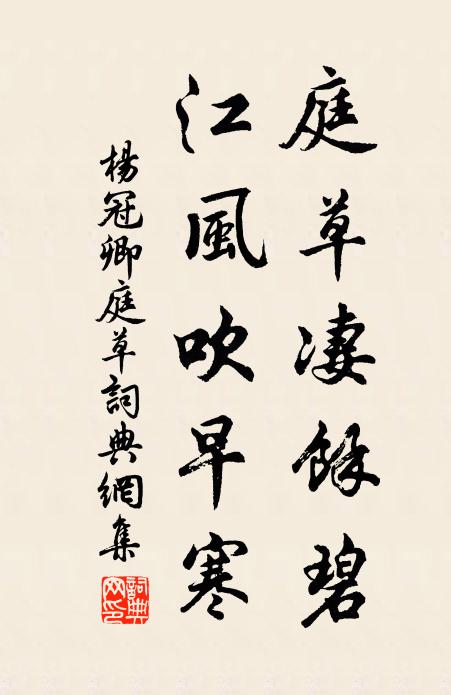 庭草凄餘碧
江風吹早寒
楊冠卿庭草詞典網集
詞典网印